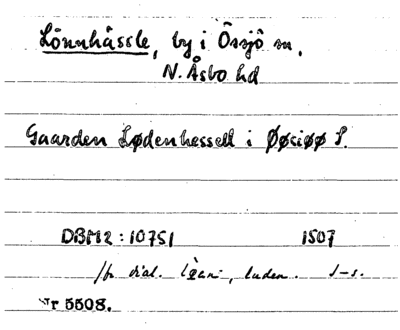 Lönnhässle, by i Össjö sn,
N. Åsbo hd
Gaarden Lødenhessell i Øøsiøø S.
DBM2:10751 1507
dial. luden.
Nr 5508.